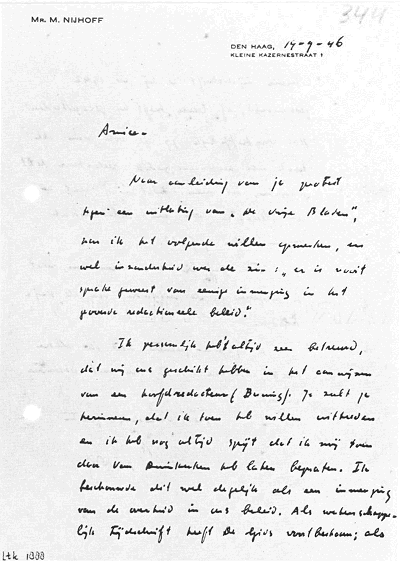 Mr. M. NIJHOFF
344
DEN HAAG, 14-9-46
KLEINE KAZERNESTRAAT 1
Amice -
Naar aanleiding van je protest
tegen een uitlating van „De Vrije Bladen”,
zou ik het volgende willen opmerken, en
wel inzonderheid over de zin: „er is nooit
sprake geweest van eenige inmenging in het
gevoerde redactioneele beleid.”
Ik persoonlijk heb altijd zeer betreurd,
dat wij ons geschikt hebben in het aanwijzen
van een hoofdredacteur (Buning). Je zult je
herinneren, dat ik toen heb willen uittreden
en ik heb nog altijd spijt dat ik mij toen
door Van Duinkerken heb laten bepraten. Ik
beschouwde dit wel degelijk als een inmenging
van de overheid in ons beleid. Als wetenschappe-
lijk tijdschrift heeft De Gids voortbestaan; als
Ltk 1888